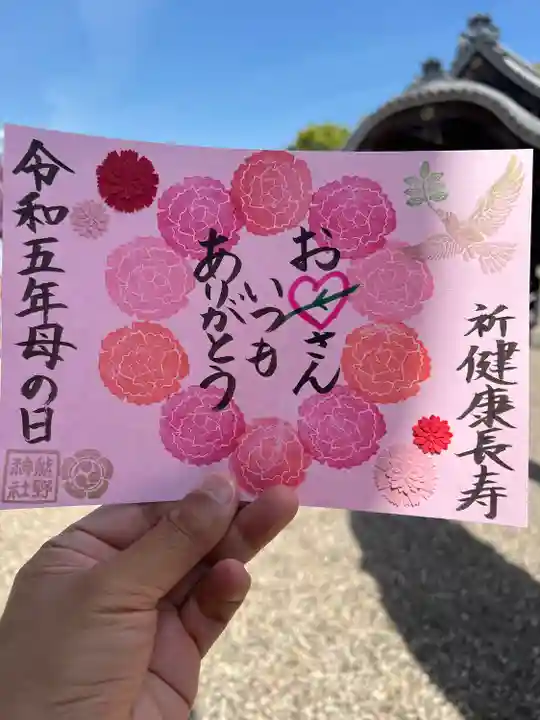 祈健康長寿
お さん
いつも
ありがとう
令和五年母の日
熊野
神社